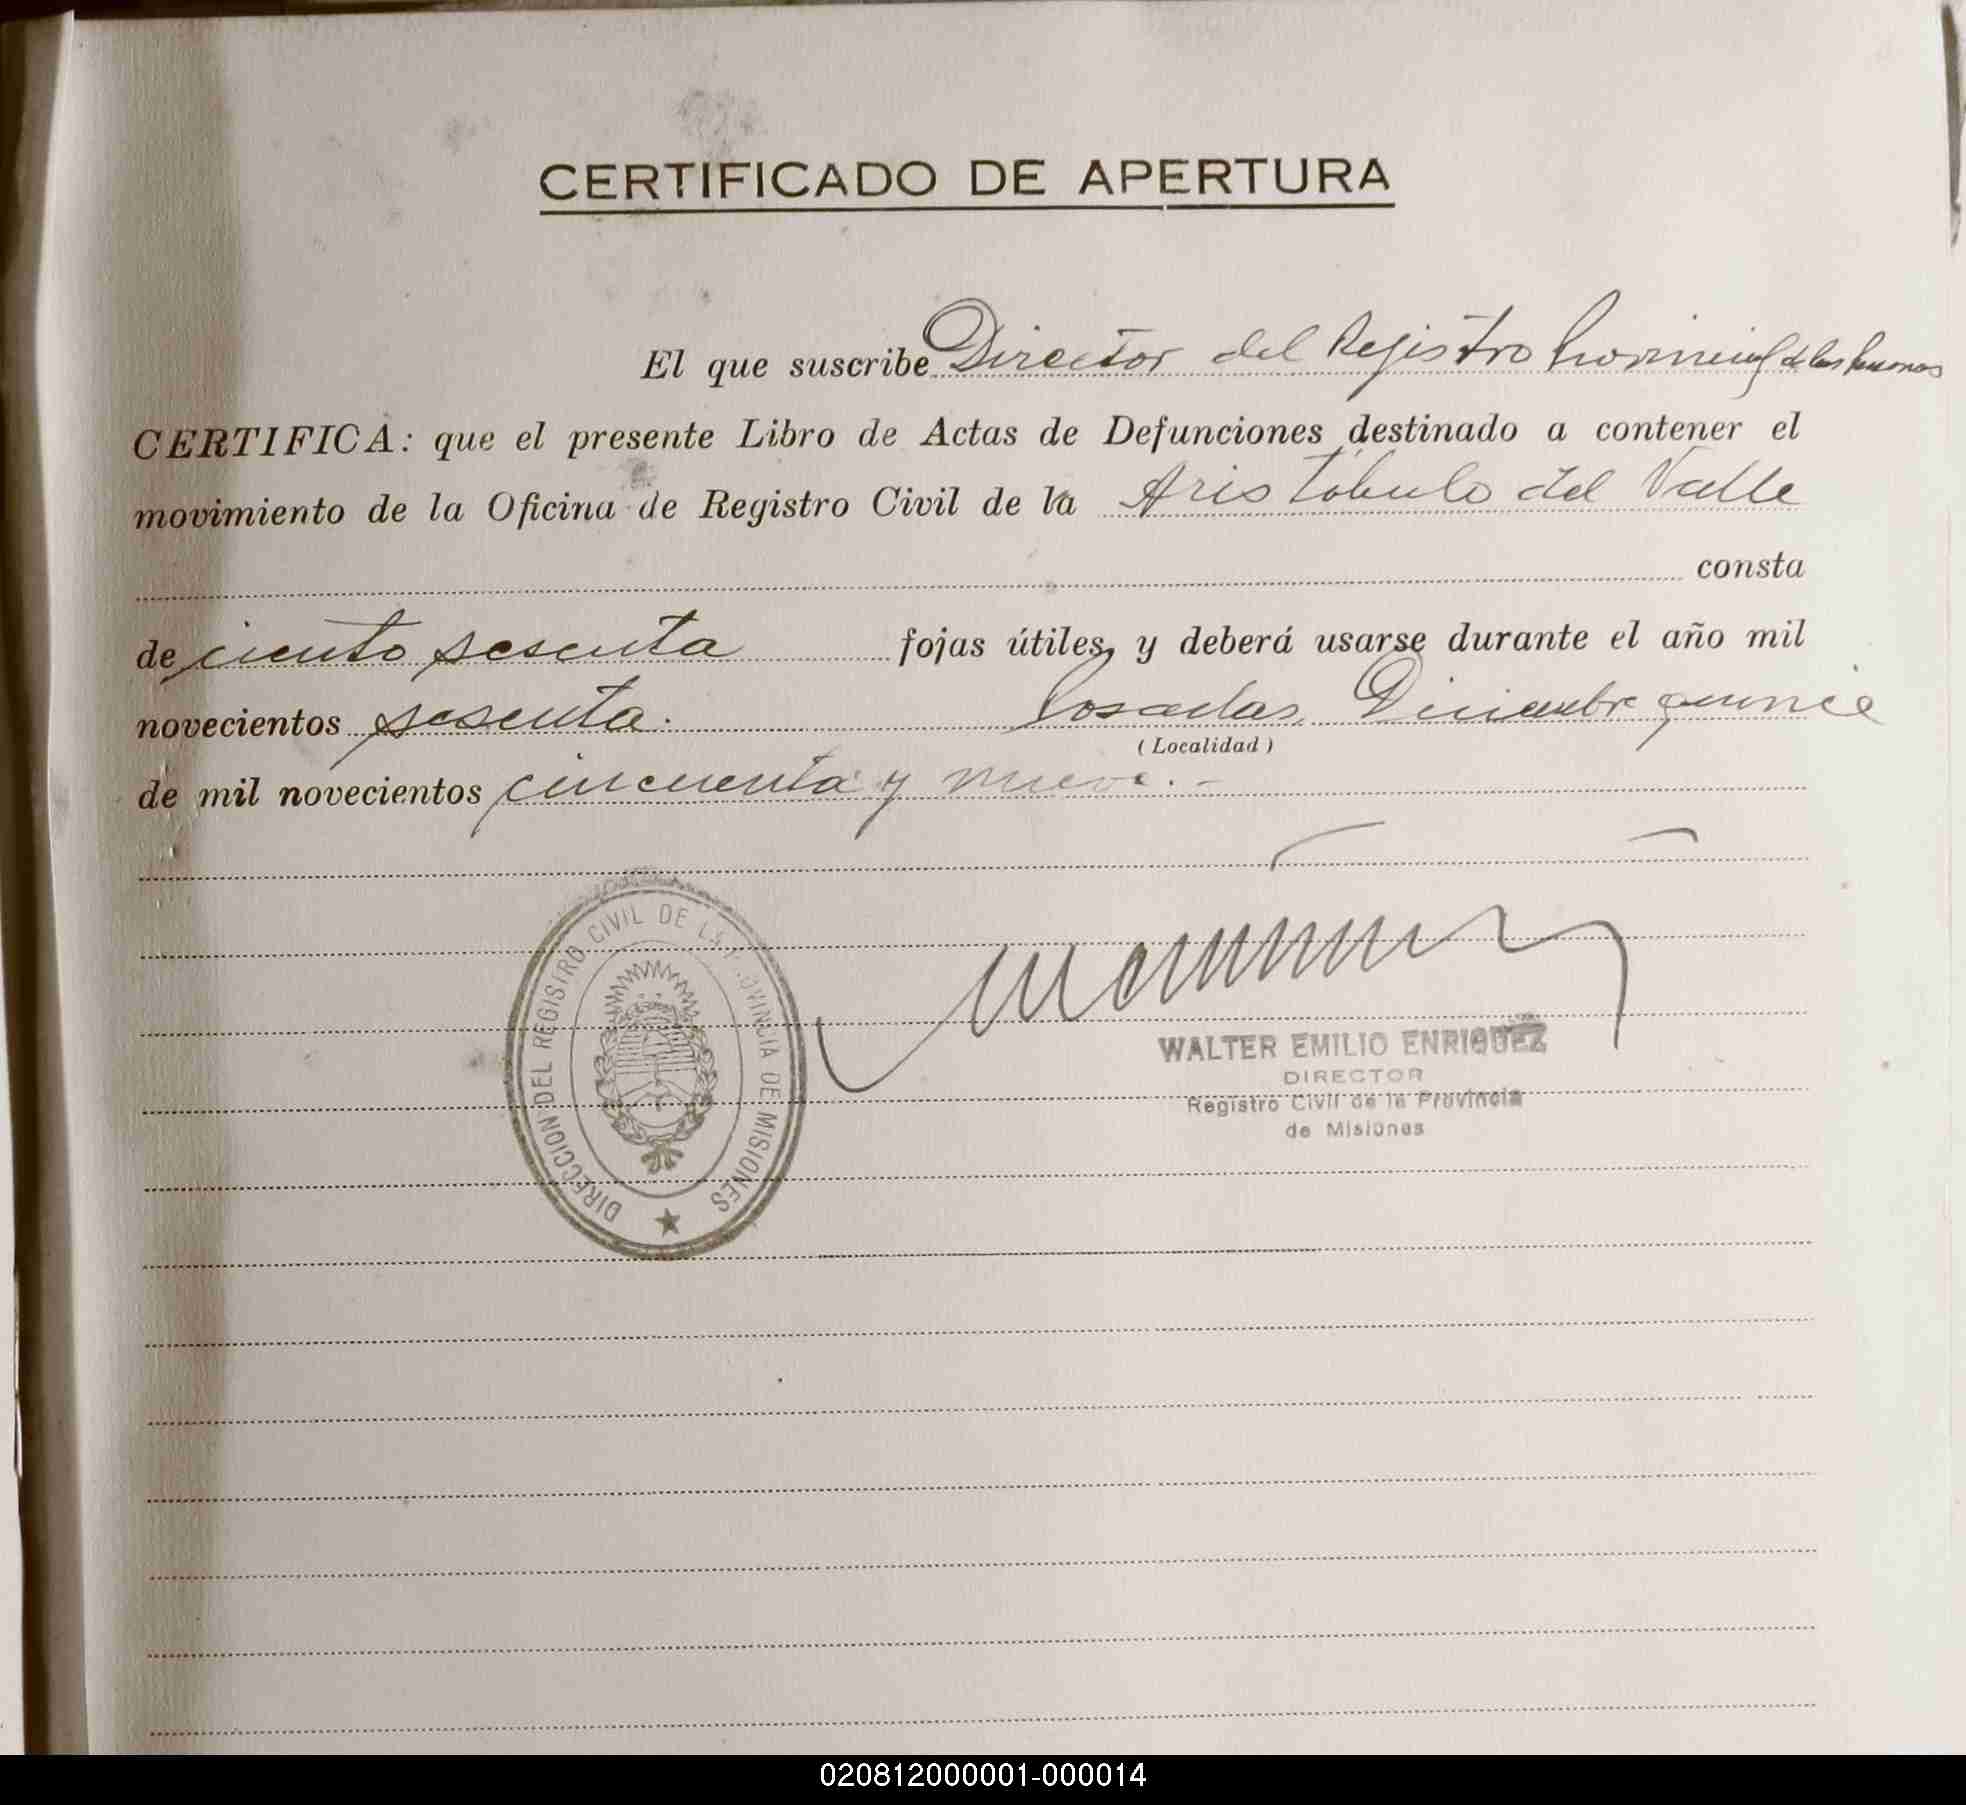 CERTIFICADO DE APERTURA
El que suscribe Director del Registro Provincial de las Personas
CERTIFICA: que el presente Libro de Actas de Defunciones destinado a contener el
movimiento de la Oficina de Registro Civil de la Aristóbulo del Valle
consta
de ciento sesenta fojas útiles, y deberá usarse durante el año mil
novecientos sesenta. Posadas, Diciembre quince
( Localidad )
de mil novecientos cincuenta y nueve.-
DIRECCION DEL REGISTRO CIVIL DE LA PROVINCIA DE MISIONES
WALTER EMILIO ENRIQUEZ
DIRECTOR
Registro Civil de la Provincia
de Misiones
020812000001-000014